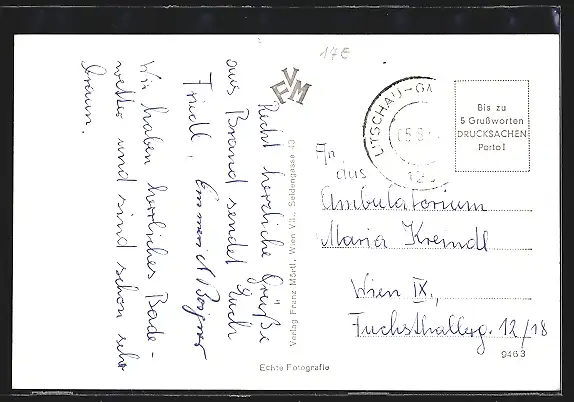 17E
Recht herzliche Grüße
aus Brand sendet Euch
Friedl,
Wir haben herrliches Bade-
wetter und sind schon sehr
braun.
VFM
Verlag Franz Mörtl, Wien VII., Seidengasse 43
Echte Fotografie
LITSCHAU-GM
Bis zu
5 Grußworten
DRUCKSACHEN
Porto!
An
aus
Ambulatorium
Maria Kremdl
Wien IX.,
Fuchsthallerg. 12/18
9463